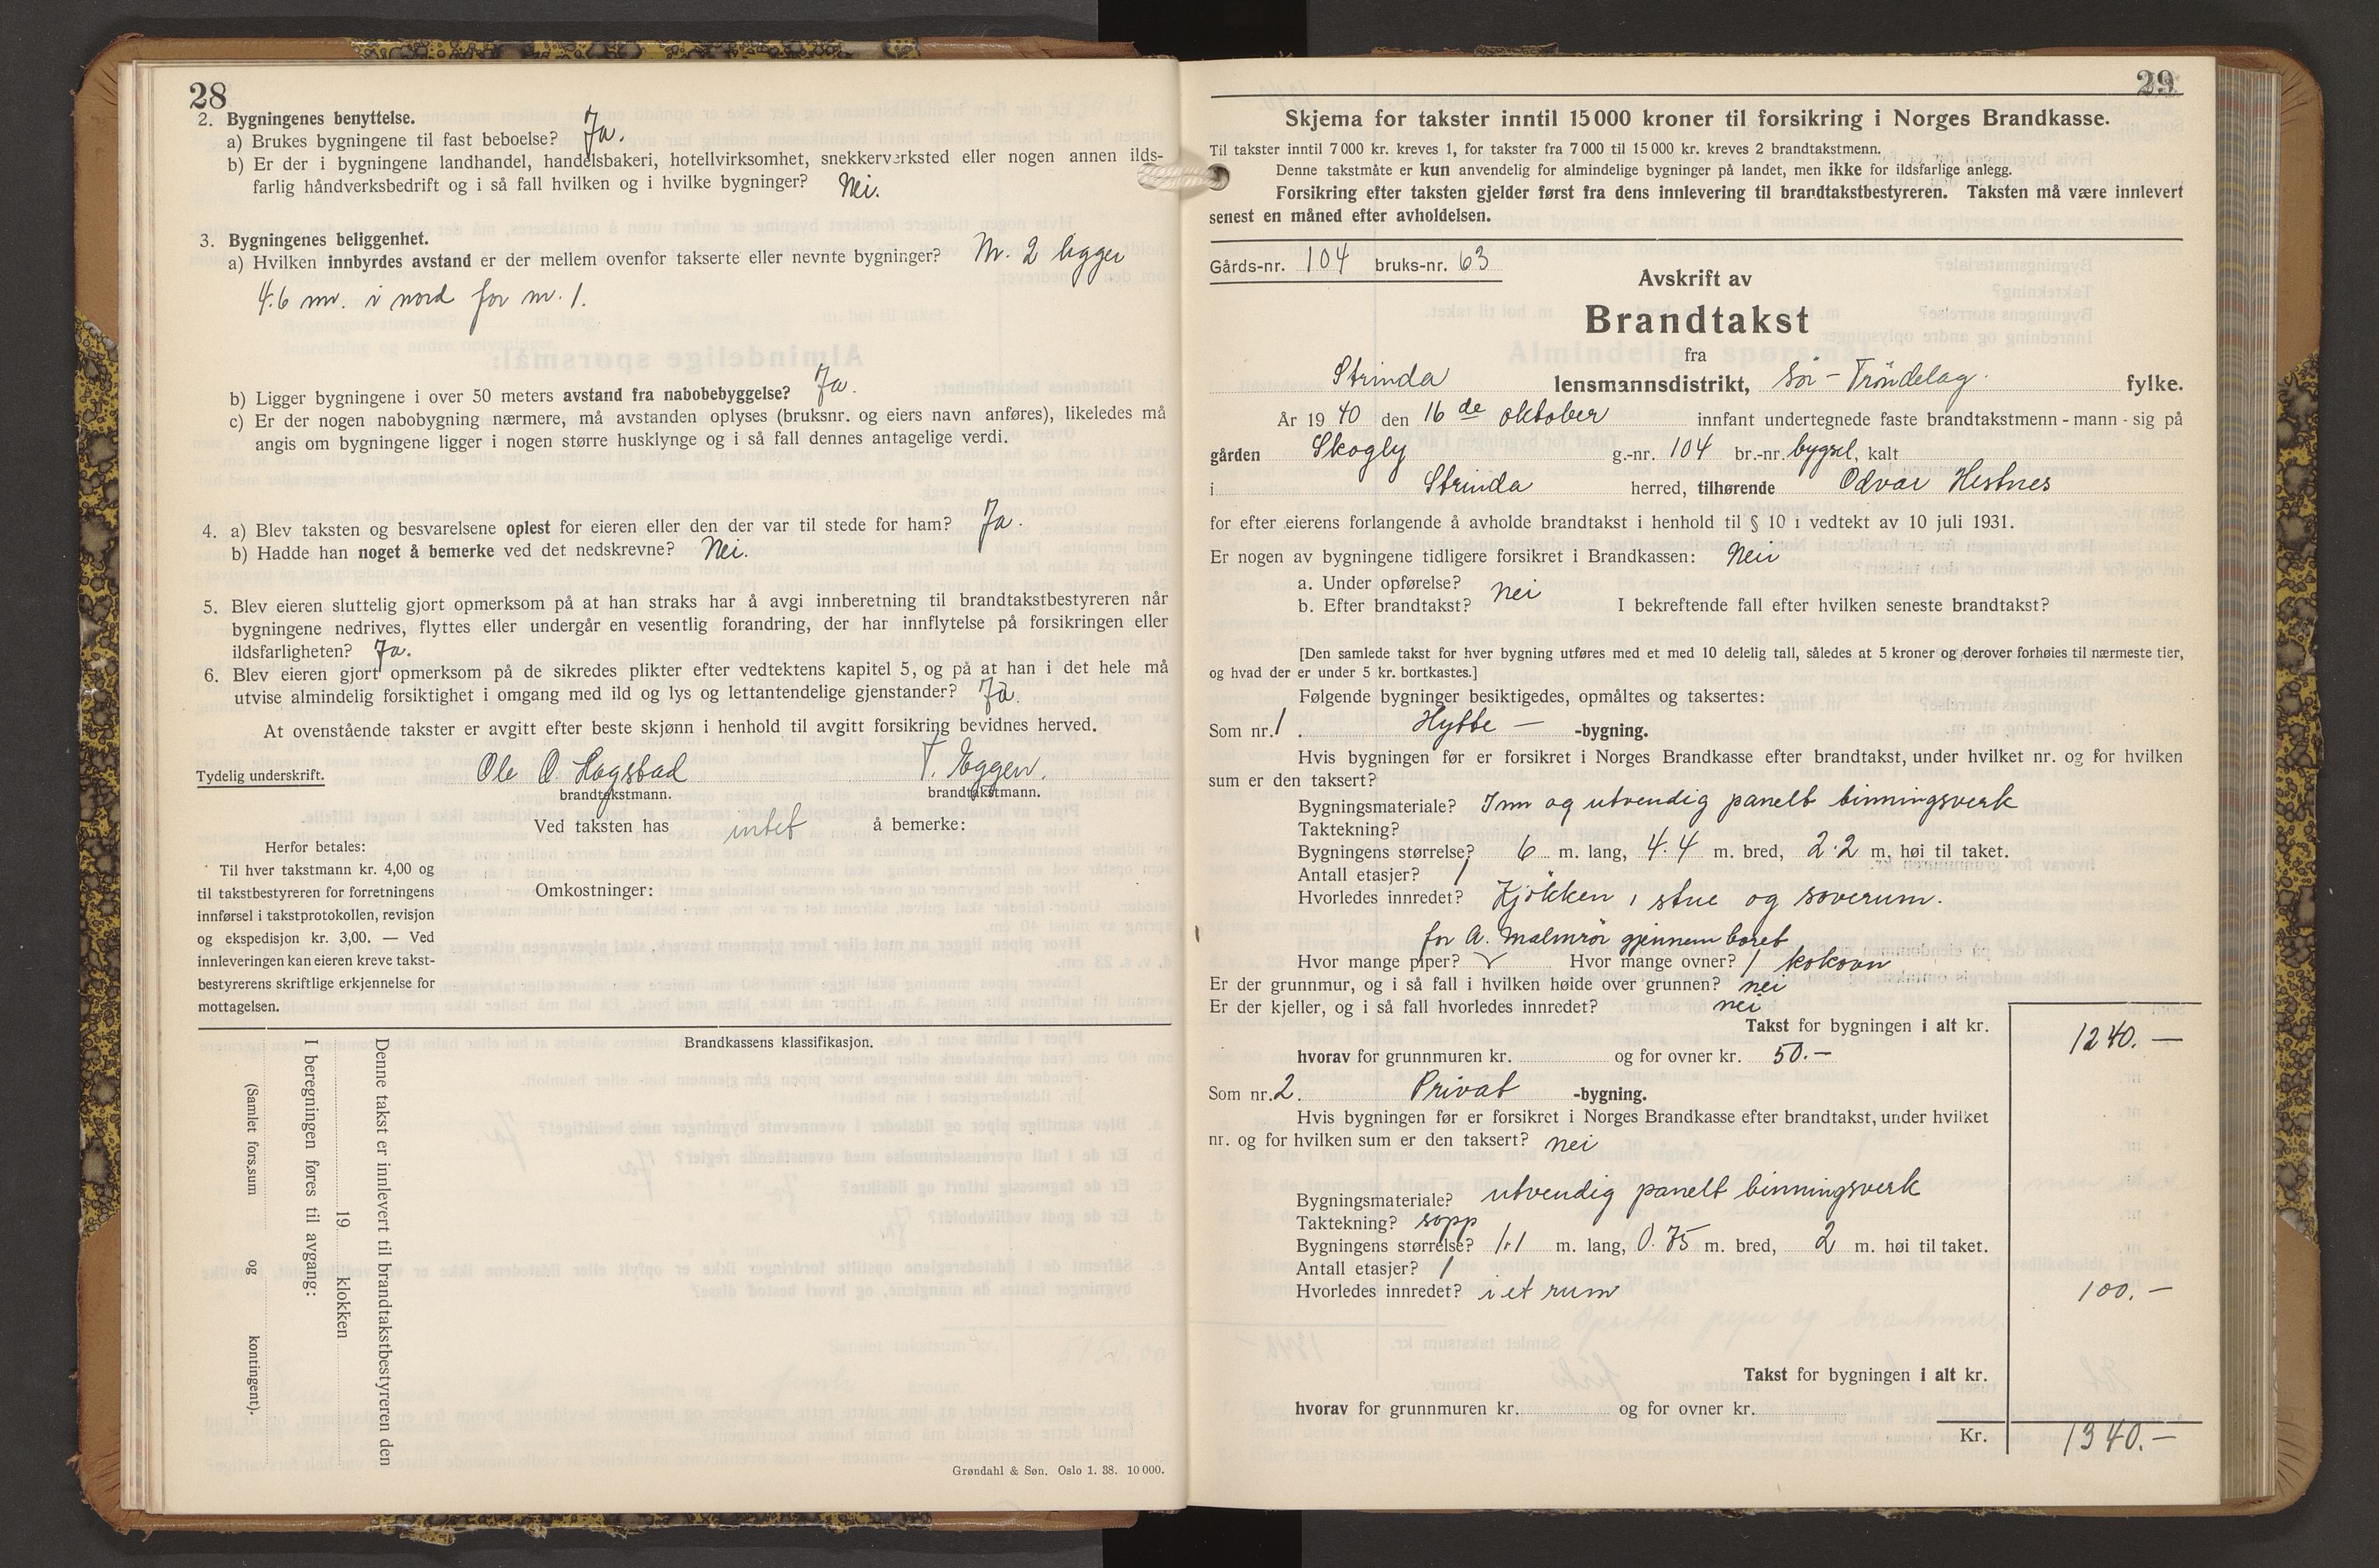 28
2. Bygningenes benyttelse.
a) Brukes bygningene til fast beboelse? Ja.
b) Er der i bygningene landhandel, handelsbakeri, hotellvirksomhet, snekkerverksted eller nogen annen ilds-
farlig håndverksbedrift og i så fall hvilken og i hvilke bygninger? Nei.
3. Bygningenes beliggenhet.
a) Hvilken innbyrdes avstand er der mellem ovenfor takserte eller nevnte bygninger? Nr. 2 ligger
4.6 m. i nord for nr. 1.
b) Ligger bygningene i over 50 meters avstand fra nabobebyggelse? Ja.
c) Er der nogen nabobygning nærmere, må avstanden oplyses (bruksnr. og eiers navn anføres), likeledes må
angis om bygningene ligger i nogen større husklynge og i så fall dennes antagelige verdi.
4. a) Blev taksten og besvarelsene oplest for eieren eller den der var til stede for ham? Ja.
b) Hadde han noget å bemerke ved det nedskrevne? Nei.
5. Blev eieren sluttelig gjort opmerksom på at han straks har å avgi innberetning til brandtakstbestyreren når
bygningene nedrives, flyttes eller undergår en vesentlig forandring, der har innflytelse på forsikringen eller
ildsfarligheten? Ja.
6. Blev eieren gjort opmerksom på de sikredes plikter efter vedtektens kapitel 5, og på at han i det hele må
utvise almindelig forsiktighet i omgang med ild og lys og lettantendelige gjenstander? Ja.
At ovenstående takster er avgitt efter beste skjønn i henhold til avgitt forsikring bevidnes herved.
Tydelig underskrift. Ole O Hagstad T. Eggen.
brandtakstmann. brandtakstmann.
Ved taksten has intet å bemerke:
Herfor betales:
Til hver takstmann kr. 4,00 og
til takstbestyreren for forretningens
innførsel i takstprotokollen, revisjon
og ekspedisjon kr. 3,00. — Ved
innleveringen kan eieren kreve takst-
bestyrerens skriftlige erkjennelse for
mottagelsen.
Omkostninger:
Brandkassens klassifikasjon.
Denne takst er innlevert til brandtakstbestyreren den
19 klokken
I beregningen føres til avgang:
(Samlet fors.sum og kontingent).
Grøndahl & Søn. Oslo 1. 38. 10 000.
29
Skjema for takster inntil 15 000 kroner til forsikring i Norges Brandkasse.
Til takster inntil 7 000 kr. kreves 1, for takster fra 7 000 til 15 000 kr. kreves 2 brandtakstmenn.
Denne takstmåte er kun anvendelig for almindelige bygninger på landet, men ikke for ildsfarlige anlegg.
Forsikring efter taksten gjelder først fra dens innlevering til brandtakstbestyreren. Taksten må være innlevert
senest en måned efter avholdelsen.
Gårds-nr. 104 bruks-nr. 63
Avskrift av
Brandtakst
fra
Strinda lensmannsdistrikt, Sör-Tröndelag. fylke.
År 1940 den 16de oktober innfant undertegnede faste brandtakstmenn - mann - sig på
gården Skogly g.-nr. 104 br.-nr. bygsel, kalt
i Strinda herred, tilhørende Odvar Hestnes
for efter eierens forlangende å avholde brandtakst i henhold til § 10 i vedtekt av 10 juli 1931.
Er nogen av bygningene tidligere forsikret i Brandkassen: Nei
a. Under opførelse? nei
b. Efter brandtakst? I bekreftende fall efter hvilken seneste brandtakst?
[Den samlede takst for hver bygning utføres med et med 10 delelig tall, således at 5 kroner og derover forhøies til nærmeste tier,
og hvad der er under 5 kr. bortkastes.]
Følgende bygninger besiktigedes, opmåltes og taksertes:
Som nr. 1. Hytte — -bygning.
Hvis bygningen før er forsikret i Norges Brandkasse efter brandtakst, under hvilket nr. og for hvilken
sum er den taksert?
Bygningsmateriale? Inn og utvendig panelt binningsverk
Taktekning?
Bygningens størrelse? 6 m. lang, 4.4 m. bred, 2.2 m. høi til taket.
Antall etasjer? 1
Hvorledes innredet? Kjökken, stue og soverum.
for A. Malmrör gjennem boret
Hvor mange piper? Hvor mange ovner? 1 kokovn
Er der grunnmur, og i så fall i hvilken høide over grunnen? nei
Er der kjeller, og i så fall hvorledes innredet? nei
Takst for bygningen i alt kr. 1240.—
hvorav for grunnmuren kr. og for ovner kr. 50.—
Som nr. 2. Privat -bygning.
Hvis bygningen før er forsikret i Norges Brandkasse efter brandtakst, under hvilket
nr. og for hvilken sum er den taksert? nei
Bygningsmateriale? utvendig panelt binningsverk
Taktekning? sopp
Bygningens størrelse? 1.1 m. lang, 0.75 m. bred, 2 m. høi til taket.
Antall etasjer? 1
Hvorledes innredet? i et rum 100.—
Takst for bygningen i alt kr.
hvorav for grunnmuren kr. og for ovner kr.
Kr. 1340.—